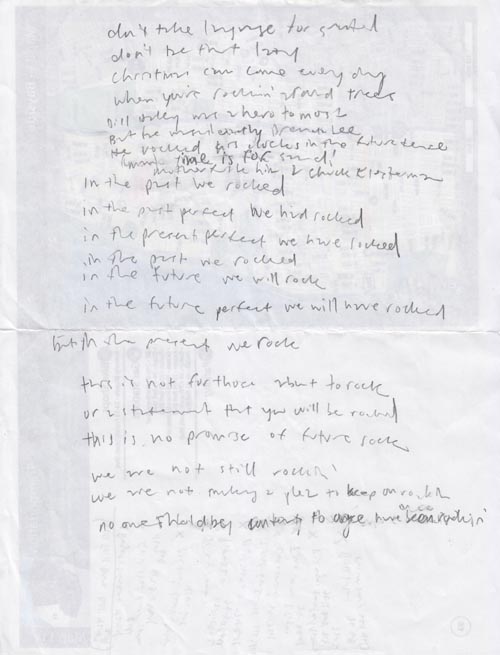 don't take language for granted
don't be that lazy
christmas can come every day
when you're rockin' around trees
Bill Haley was a hero to most
But he wasn't exactly Brenda Lee
He rocked his clocks in the future tense
time is for
motherfuck him & Chuck Klosterman
In the past we rocked
in the past perfect we had rocked
in the present perfect we have rocked
in the past we rocked
in the future we will rock
in the future perfect we will have rocked
but in the present we rock
this is not for those about to rock
or a statement that you will be rocked
this is no promise of future rock
we are not still rockin'
we are not making a plea to keep on rockin
no one should be content to have been rockin'